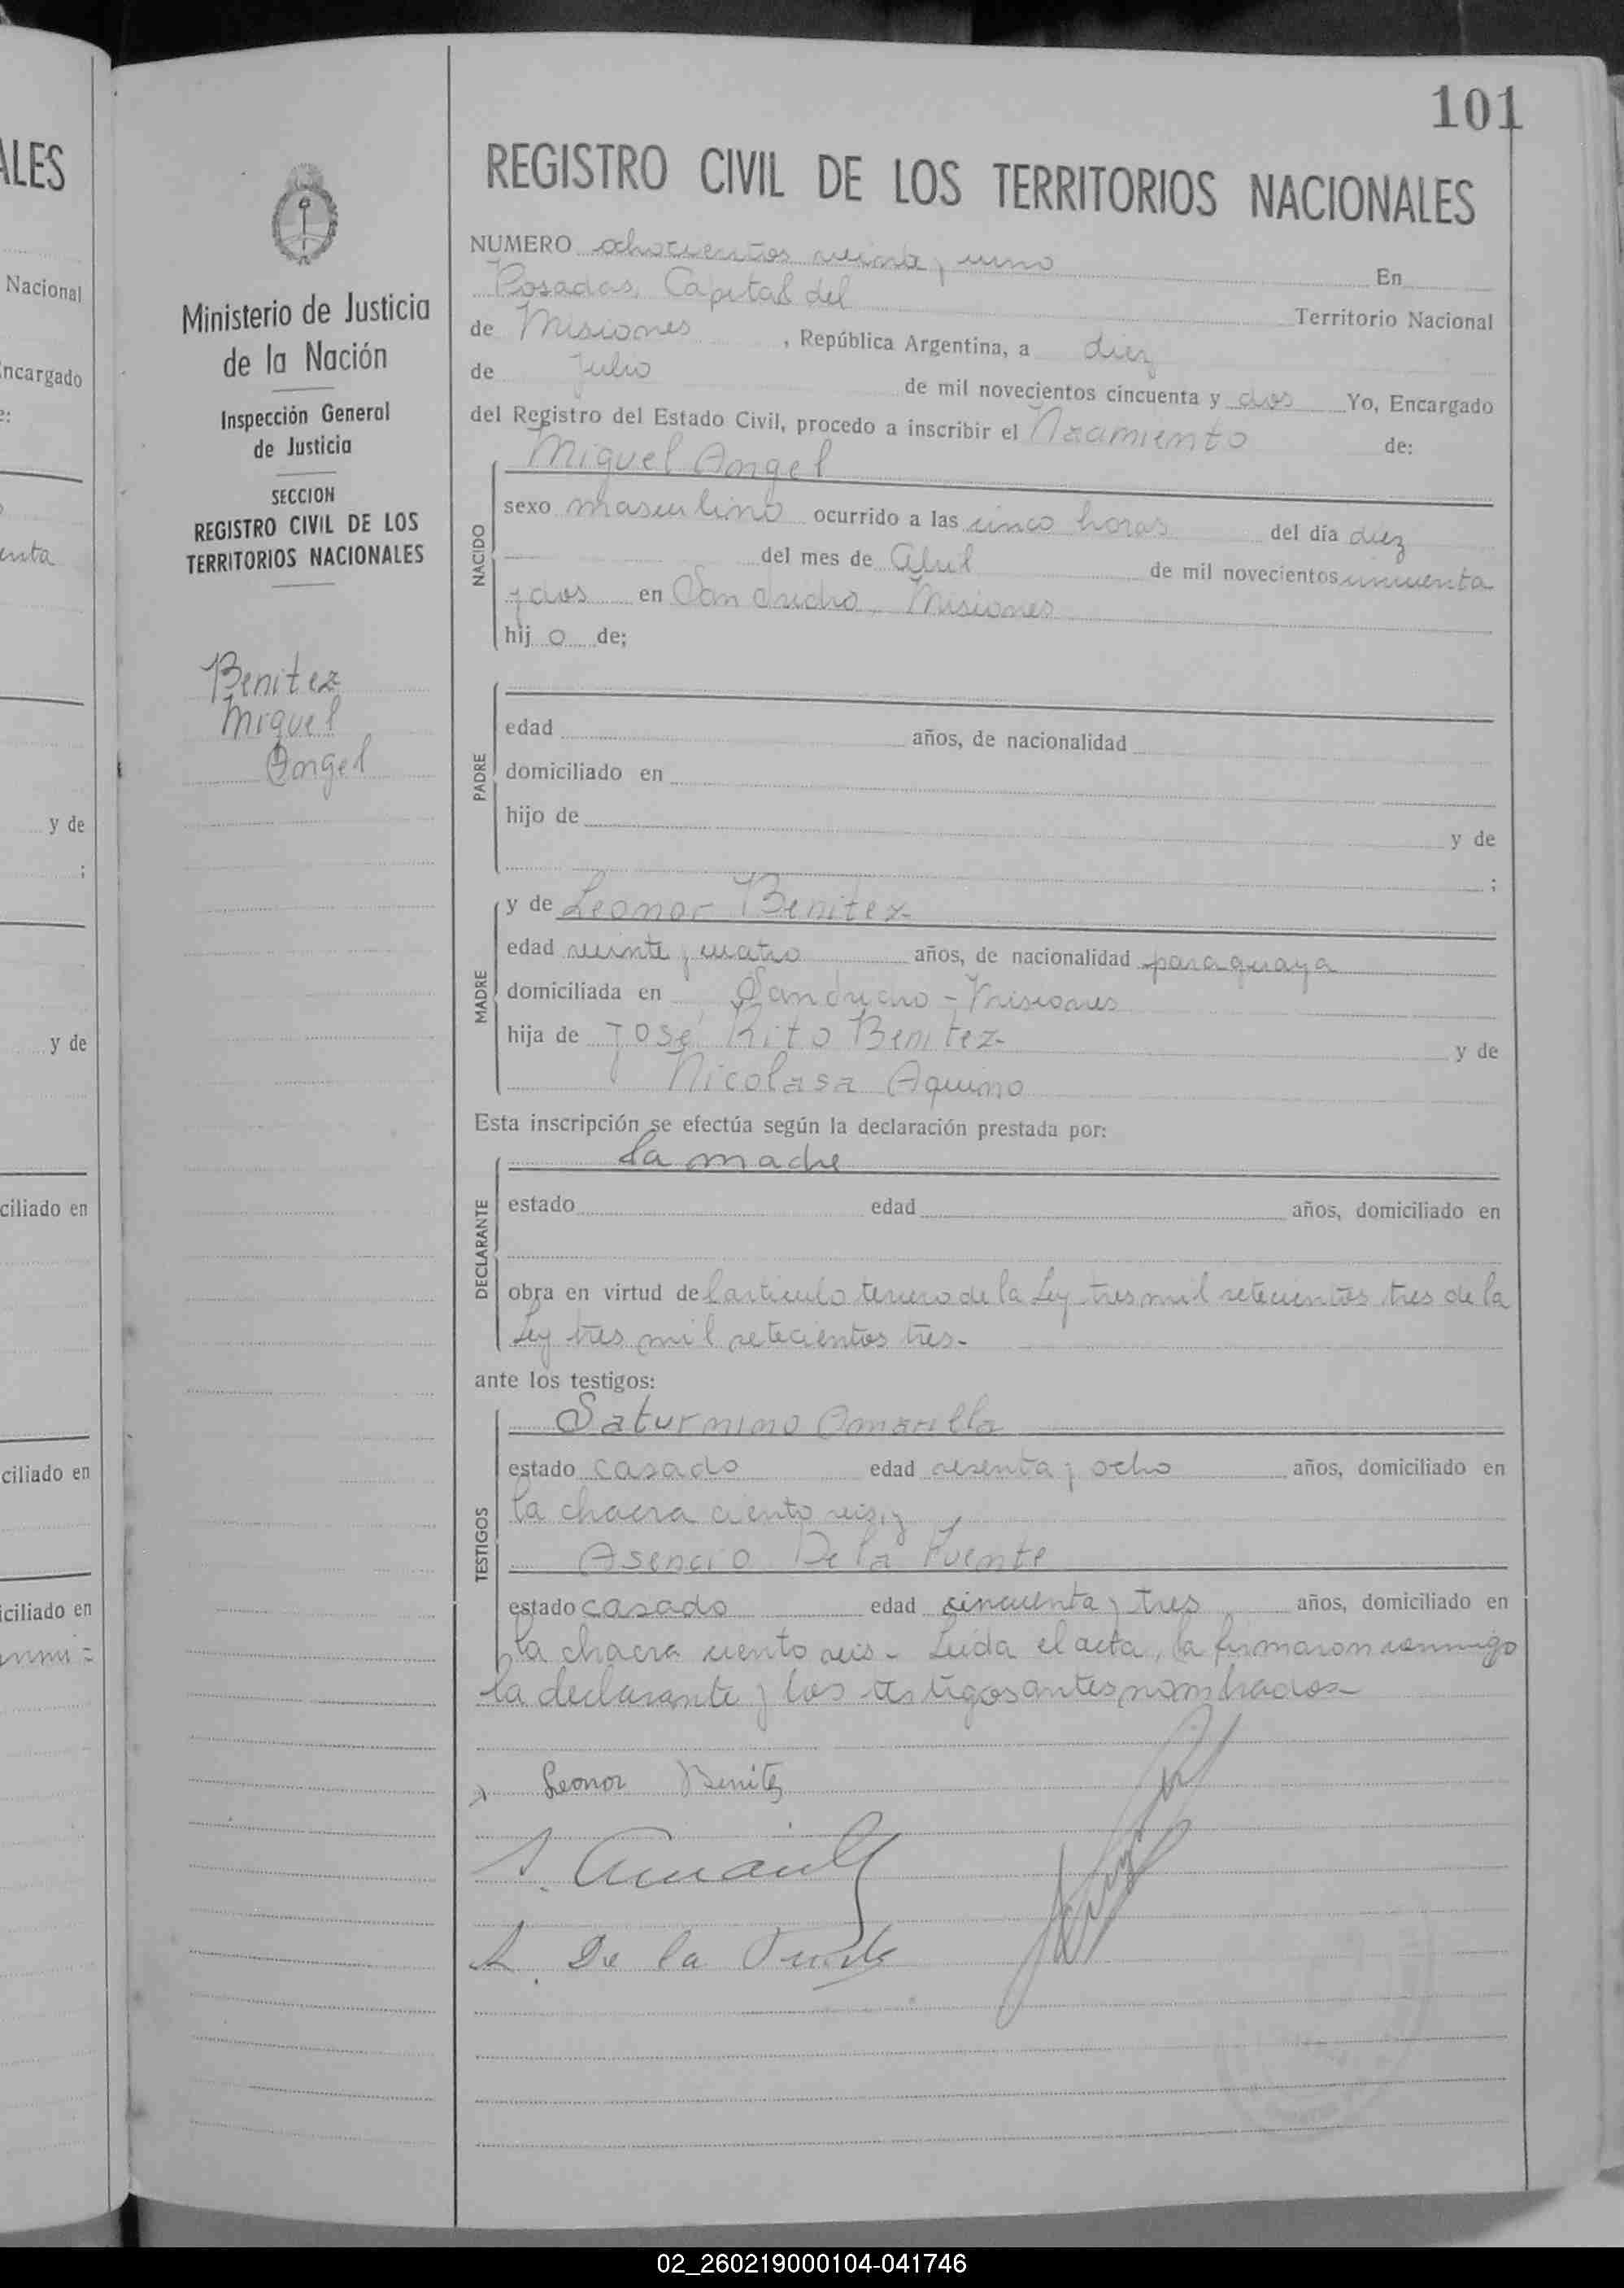 101
ALES
REGISTRO CIVIL DE LOS TERRITORIOS NACIONALES
Nacional
Encargado
e:
enta
y de
;
y de
ciliado en
ciliado en
iciliado en
Ministerio de Justicia
de la Nación
Inspección General
de Justicia
SECCION
REGISTRO CIVIL DE LOS
TERRITORIOS NACIONALES
Benitez
Miguel
Angel
NUMERO ochocientos veinte y uno En
Posadas, Capital del Territorio Nacional
de Misiones , República Argentina, a diez
de Julio de mil novecientos cincuenta y dos Yo, Encargado
del Registro del Estado Civil, procedo a inscribir el Nacimiento de:
NACIDO
Miguel Angel
sexo masculino ocurrido a las cinco horas del día diez
del mes de Abril de mil novecientos cincuenta
y dos en Misiones
hij o de;
PADRE
edad años, de nacionalidad
domiciliado en
hijo de y de
;
MADRE
y de Leonor Benitez
edad veinte y cuatro años, de nacionalidad paraguaya
domiciliada en - Misiones
hija de José Rito Benitez y de
Nicolasa Aquino
Esta inscripción se efectúa según la declaración prestada por:
DECLARANTE
la madre
estado edad años, domiciliado en
obra en virtud de l articulo tercero de la Ley tres mil setecientos tres de la
Ley tres mil setecientos tres-
ante los testigos:
TESTIGOS
Saturnino Amarilla
estado casado edad sesenta y ocho años, domiciliado en
la chacra ciento seis, y
Asencio De la Fuente
estado casado edad cincuenta y tres años, domiciliado en
la chacra ciento seis - Leida el acta, la firmaron conmigo
la declarante y los testigos antes nombrados-
Leonor Benitez
S. Amarilla
A. De la Fuente
02_260219000104-041746